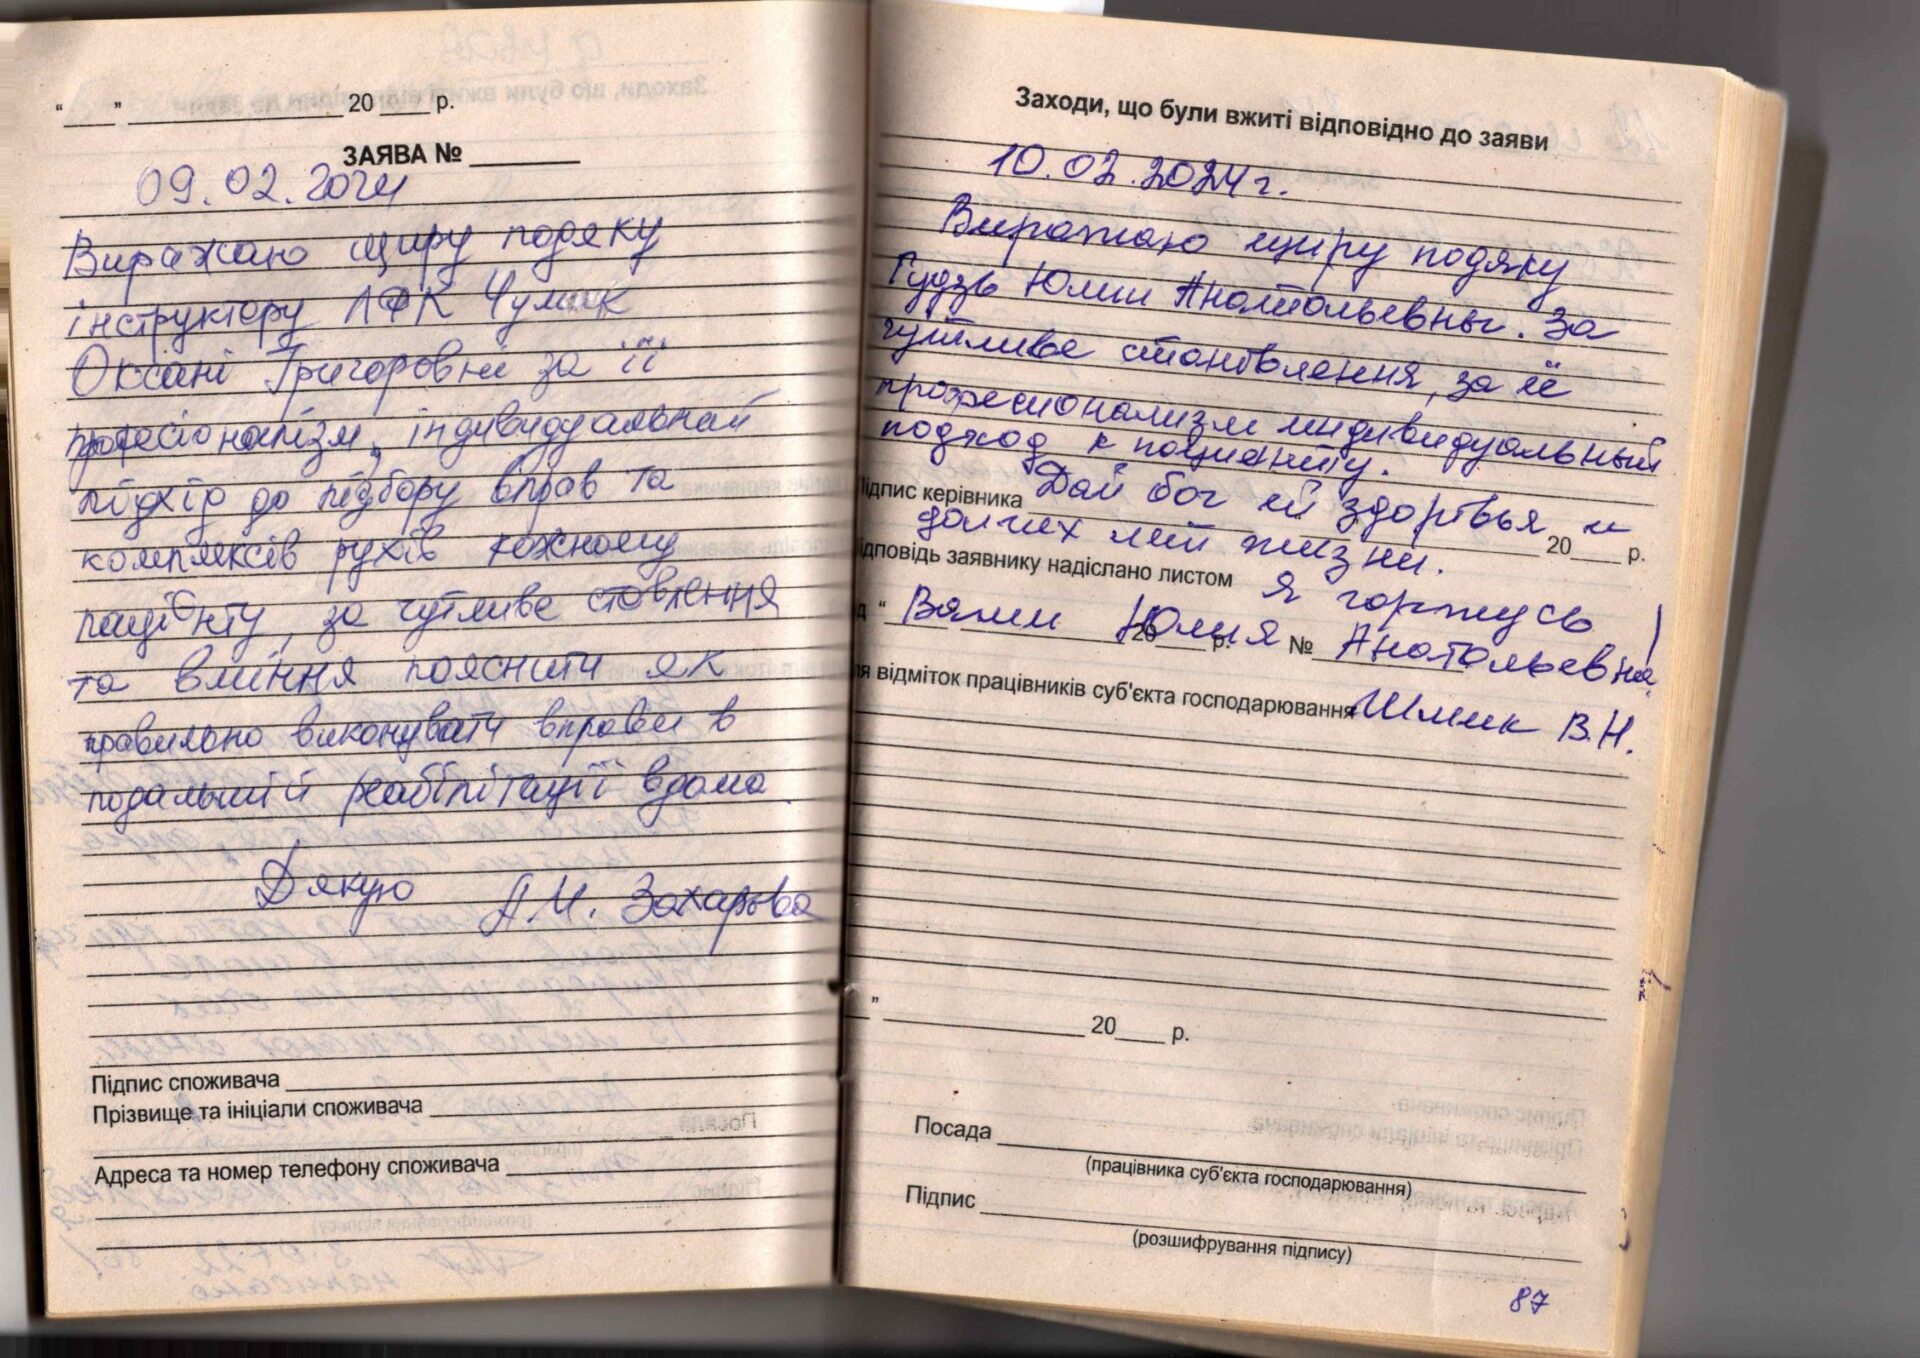 “ ” 20 р.
ЗАЯВА №
09.02.2024
Виражаю щиру подяку
інструктору ЛФК Чумак
Оксані Григоровні за її
професіоналізм, індивидуальний
підхід до підбору вправ та
комплексів рухів кожному
пацієнту, за чутливе ставлення
та вміння пояснити як
правильно виконувати вправи в
подальшій реабілітації вдома.
Дякую А.М. Захарова
Підпис споживача
Прізвище та ініціали споживача
Адреса та номер телефону споживача
Заходи, що були вжиті відповідно до заяви
10.02.2024г.
Виражаю щиру подяку
Гудзь Юлии Анатольевны. За
чутливе становлення, за её
професионализм индивидуальный
подход к пациенту.
Підпис керівника Дай бог ей здоровья и
долгих лет жизни. 20 р.
ідповідь заявнику надіслано листом
Я горжусь
“ Вами Юлия Анатольевна!
20 р. №
ля відміток працівників суб'єкта господарювання
Шмик В.Н.
” 20 р.
Посада
(працівника суб'єкта господарювання)
Підпис
(розшифрування підпису)
87